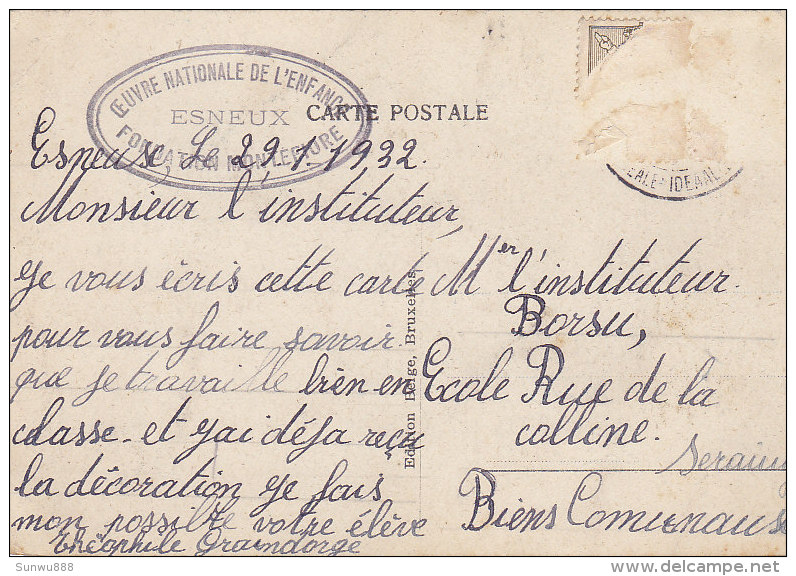 ŒUVRE NATIONALE DE L'ENFANCE
ESNEUX
FONDATION MONTEFIORE
CARTE POSTALE
Esneux, Le 29, 1. 1932.
Monsieur l'instituteur,
Je vous écris cette carte
pour vous faire savoir
que je travaille bien en
classe. et j'ai déja reçu
la décoration je fais
mon possible votre élève
Théophile Graindorge
Edition Belge, Bruxelles
IDEAAL
Mer l'instituteur.
Borsu,
Ecole Rue de la
colline.
Seraing
Biens Comunaus
Sunwu888
delcampe.net